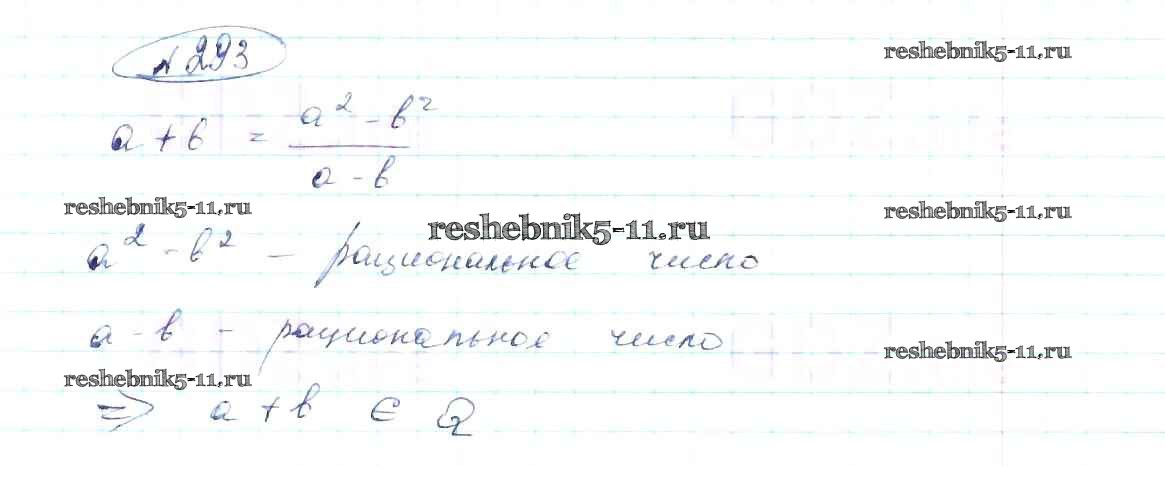 № 293
reshebnik5-11.ru
a + b = (a² - b²) / (a - b)
reshebnik5-11.ru
reshebnik5-11.ru
reshebnik5-11.ru
a² - b² - рациональное число
a - b - рациональное число
reshebnik5-11.ru
reshebnik5-11.ru
=> a + b ∈ Q